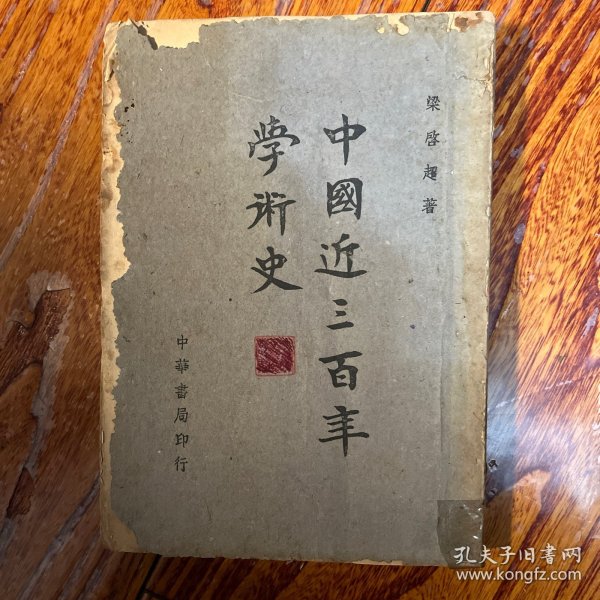 梁啓超著
中國近三百年
學術史
中華書局印行
孔夫子旧書网
www.kongfz.com